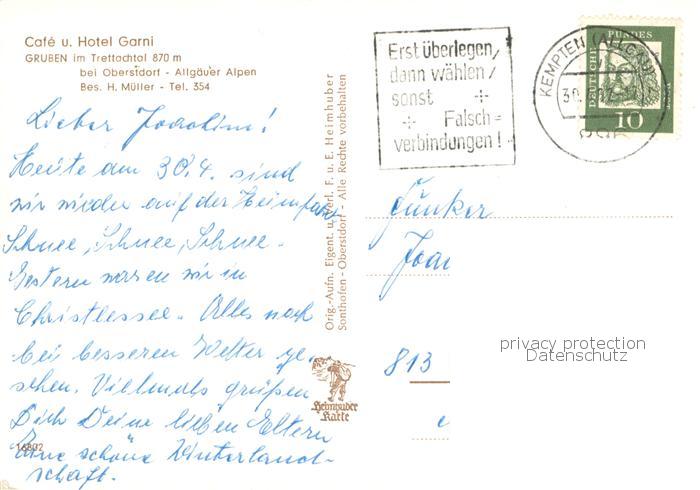 Café u. Hotel Garni
GRUBEN im Trettachtal 870 m
bei Oberstdorf - Allgäuer Alpen
Bes. H. Müller - Tel. 354
Lieber Joachim!
Heute am 30.4. sind
wir wieder auf der Heimfahrt
Schnee, Schnee, Schnee.
Gestern waren wir in
Christlessee. Alles noch
bei besseren Wetter ge-
sehen. Vielmals grüßen
Dich Deine lieben Eltern
Eine schöne Winterland-
schaft.
16802
Orig.-Aufn. Eigent. u. Verl. F. u. E. Heimhuber
Sonthofen - Oberstdorf - Alle Rechte vorbehalten
Heimhuber
Karte
Erst überlegen,
dann wählen,
sonst
Falsch=
verbindungen!
KEMPTEN (ALLGÄU)
30.
896
DEUTSCHE
BUNDES
POST
10
Junker
Joa
813
privacy protection
Datenschutz